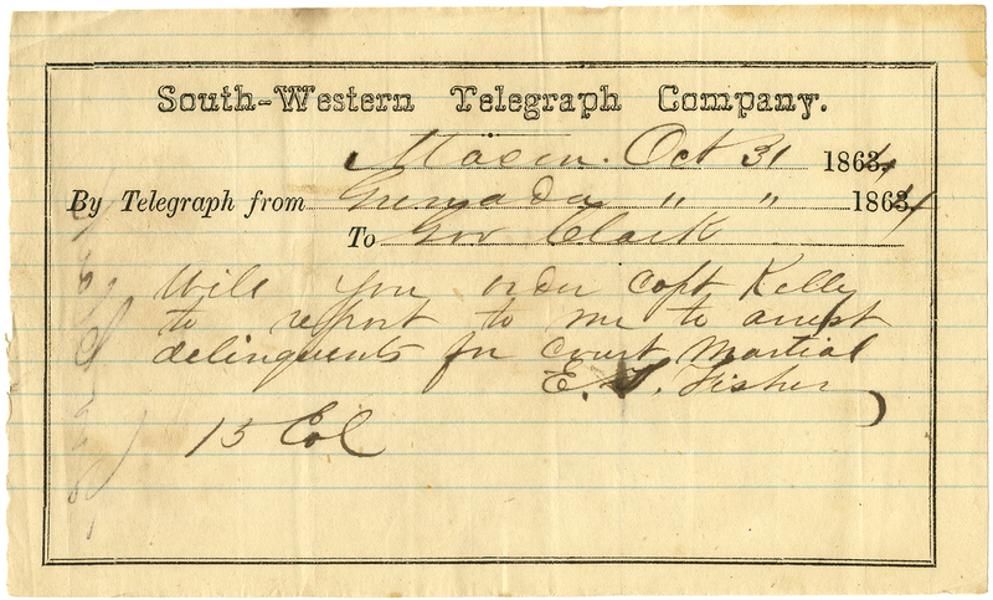 South-Western Telegraph Company.
Macon. Oct 31 1864
By Telegraph from Grenada " " 1864
To Gov Clark
Will you order Capt Kelly
to report to me to arrest
delinquents for Court Martial
E. S. Fisher
15 Col